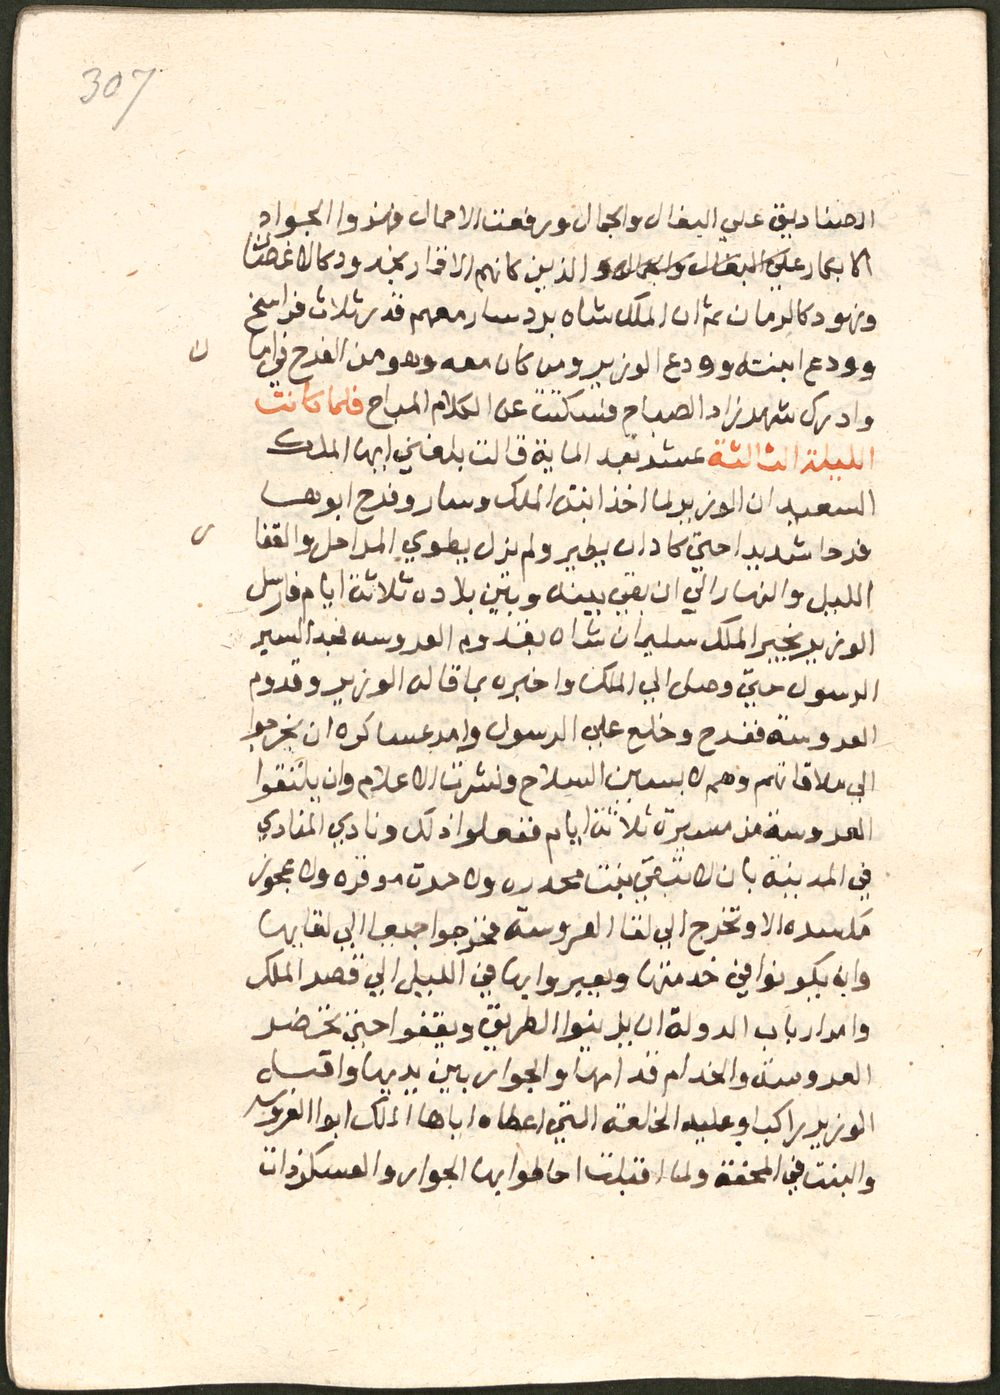 307
الصناديق علي البغال والجمال ورفعت الاحمال وقدموا الجوار
الابكار علي البغال والجمال والذين كانهم الاقمار بخدود كالاغصان
ونهود كالرمان ثم ان الملك شاه برد سار معهم قدر ثلاث فراسخ
وودع ابنته وودع الوزير ومن كان معه وهو من الفرح في امان
وادرك شهرزاد الصباح فسكتت عن الكلام المباح فلما كانت
الليلة الثالثة عشر بعد الماية قالت بلغني ايها الملك
السعيد ان الوزير لما اخذ ابنة الملك وسار وفرح ابوها
فرحا شديدا حتي كاد ان يطير ولم يزل يطوي المراحل والقفار
الليل والنهار الي ان بقي بينه وبين بلاده ثلاثة ايام فارسل
الوزير يخبر الملك سليمان شاه بقدوم العروسه فجد السير
الرسول حتي وصل الي الملك واخبره بما قاله الوزير وقدوم
العروسة ففرح وخلع علي الرسول وامر عساكره ان يخرجوا
الي ملاقاتهم وهم لابسين السلاح ونشرت الاعلام وان يلتقوا
العروسة من مسيرة ثلاثة ايام ففعلوا ذلك ونادي المنادي
في المدينة بان لا تبقي بنت مخدره ولا حرة موقره ولا عجوز
مكسره الا وتخرج الي لقا العروسة فخرجوا جميعا الي لقايها
وان يكونوا في خدمتها ويعبروا بها في الليل الي قصر الملك
وامر ارباب الدولة ان يزينوا الطريق ويقفوا حتي تحضر
العروسة والخدام قدامها والجوار بين يديها واقبل
الوزير راكبا وعليه الخلعة التي اعطاه اياها الملك ابو العروسه
والبنت في المحفة ولما اقبلت احاطوا بها الجوار والعسكر ذات